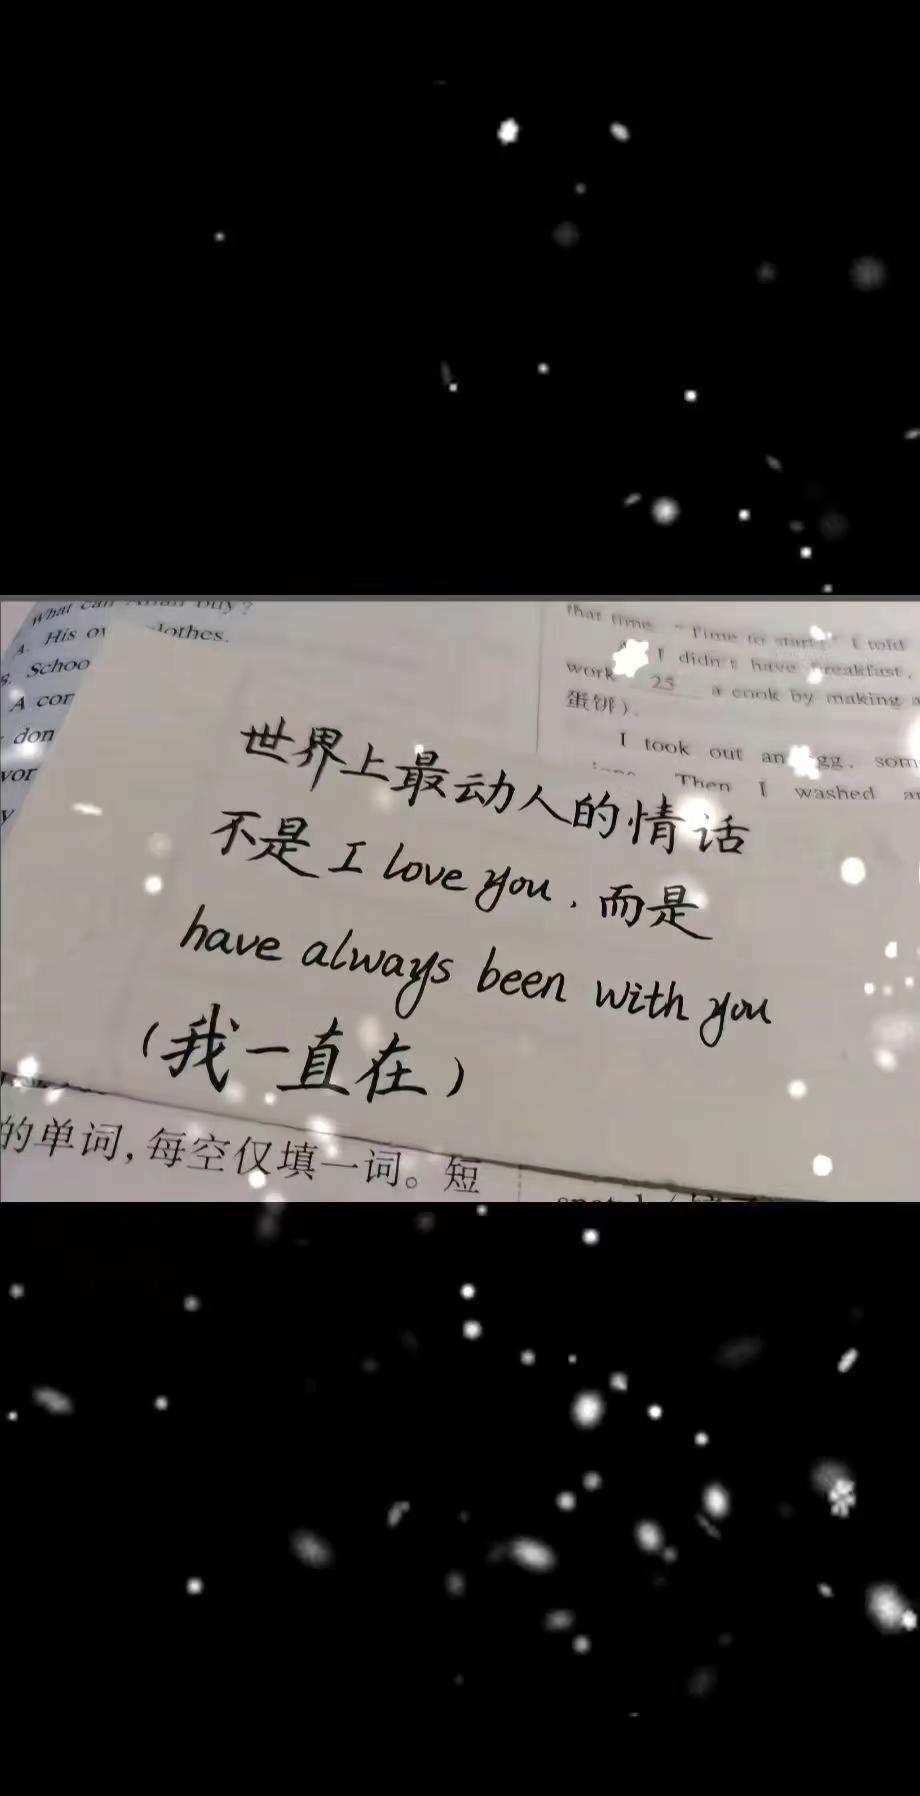 What can Allan buy?
A. His ow clothes.
Schoo
A cor
don
vor
y
that time. "Time to start!" I told
I didn't have breakfast,
work 25 a cook by making a
蛋饼).
I took out an egg, som
Then I washed a
世界上最动人的情话
不是 I love you, 而是
have always been with you
(我一直在)
的单词,每空仅填一词。短